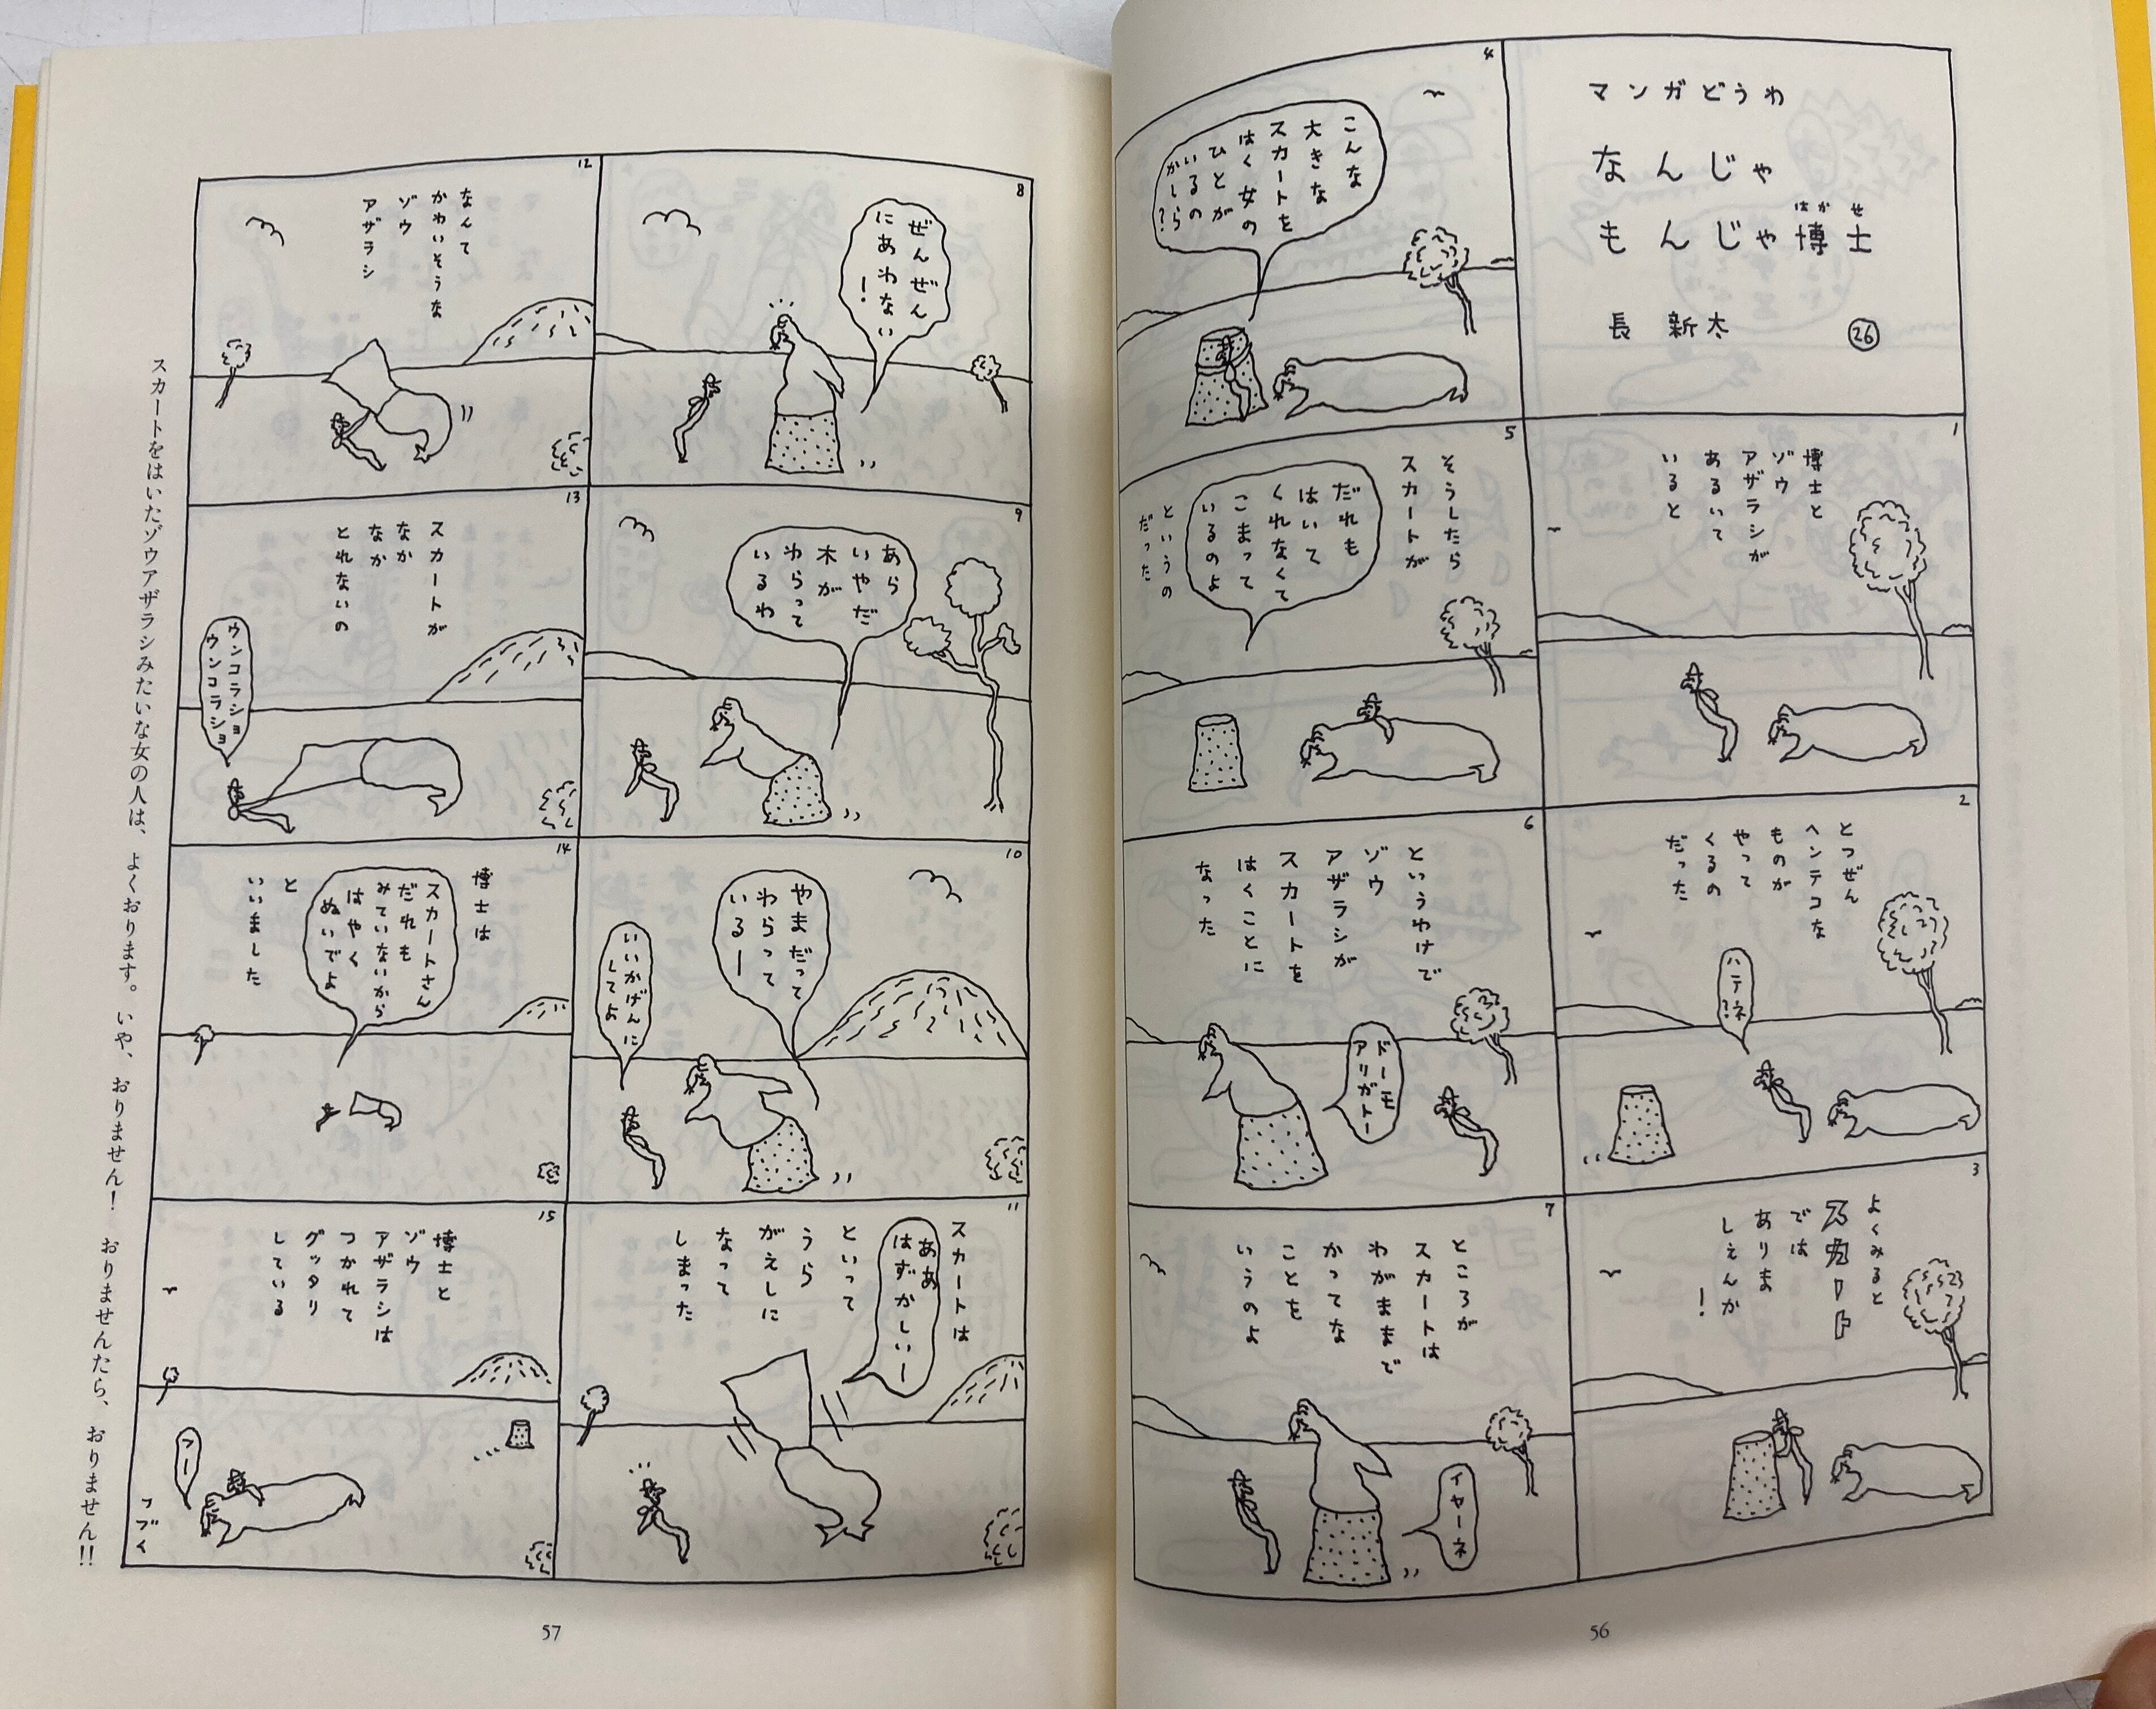 マンガどうわ
なんじゃ
もんじゃ博士
はかせ
長新太
26
1
博士と
ゾウ
アザラシが
あるいて
いると
2
とつぜん
ヘンテコな
ものが
やって
くるの
だった
ハテネ?
3
よくみると
スカート
では
ありま
しぇんか
!
4
こんな
大きな
スカートを
はく女の
ひとが
いるの
かしら?
5
そうしたら
スカートが
だれも
はいて
くれなくて
こまって
いるのよ
というの
だった
6
というわけで
ゾウ
アザラシが
スカートを
はくことに
なった
ドーモ
アリガトー
7
ところが
スカートは
わがままで
かってな
ことを
いうのよ
イヤーネ
56
8
ぜんぜん
にあわない
!
9
あら
いやだ
木が
わらって
いるわ
10
やまだって
わらって
いるー
いいかげんに
してよ
11
スカートは
ああ
はずかしいー
といって
うら
がえしに
なって
しまった
12
なんて
かわいそうな
ゾウ
アザラシ
13
スカートが
なか
なか
とれないの
ウンコラショ
ウンコラショ
14
博士は
スカートさん
だれも
みていないから
はやく
ぬいでよ
と
いいました
15
博士と
ゾウ
アザラシは
つかれて
グッタリ
している
フー
ツヅく
スカートをはいたゾウアザラシみたいな女の人は、よくおります。いや、おりません!おりませんたら、おりません!!
57